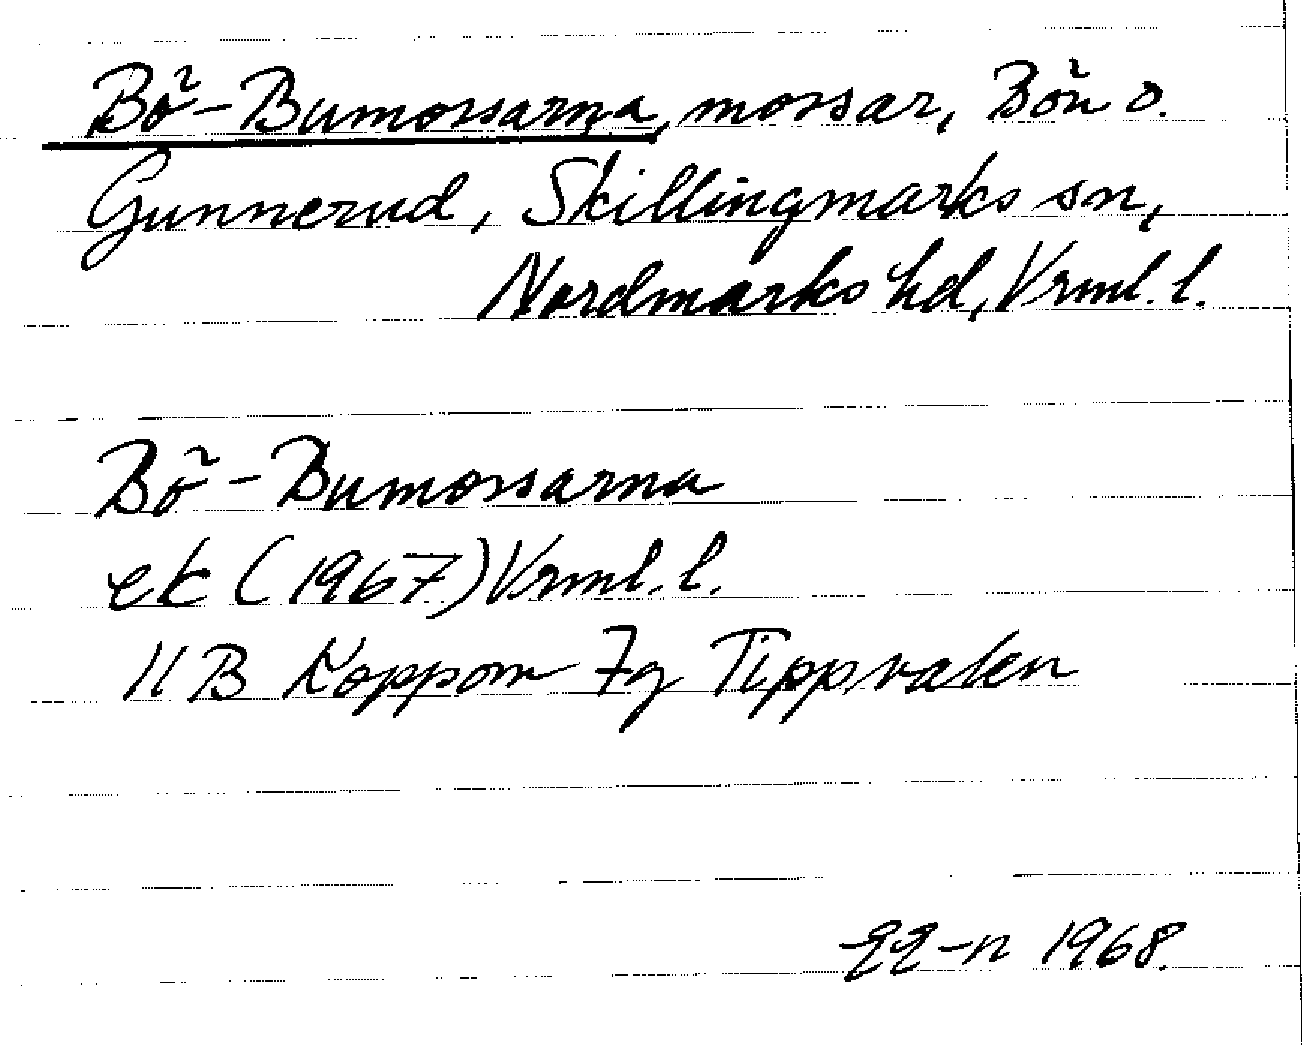 Bö-Bumossarna, mossar, Bön o.
Gunnerud, Skillingmarks sn,
Nordmarks hd, Vrml. l.
Bö-Bumossarna
ek (1967) Vrml. l.
11B Koppom 7g Tippvaken
1968.